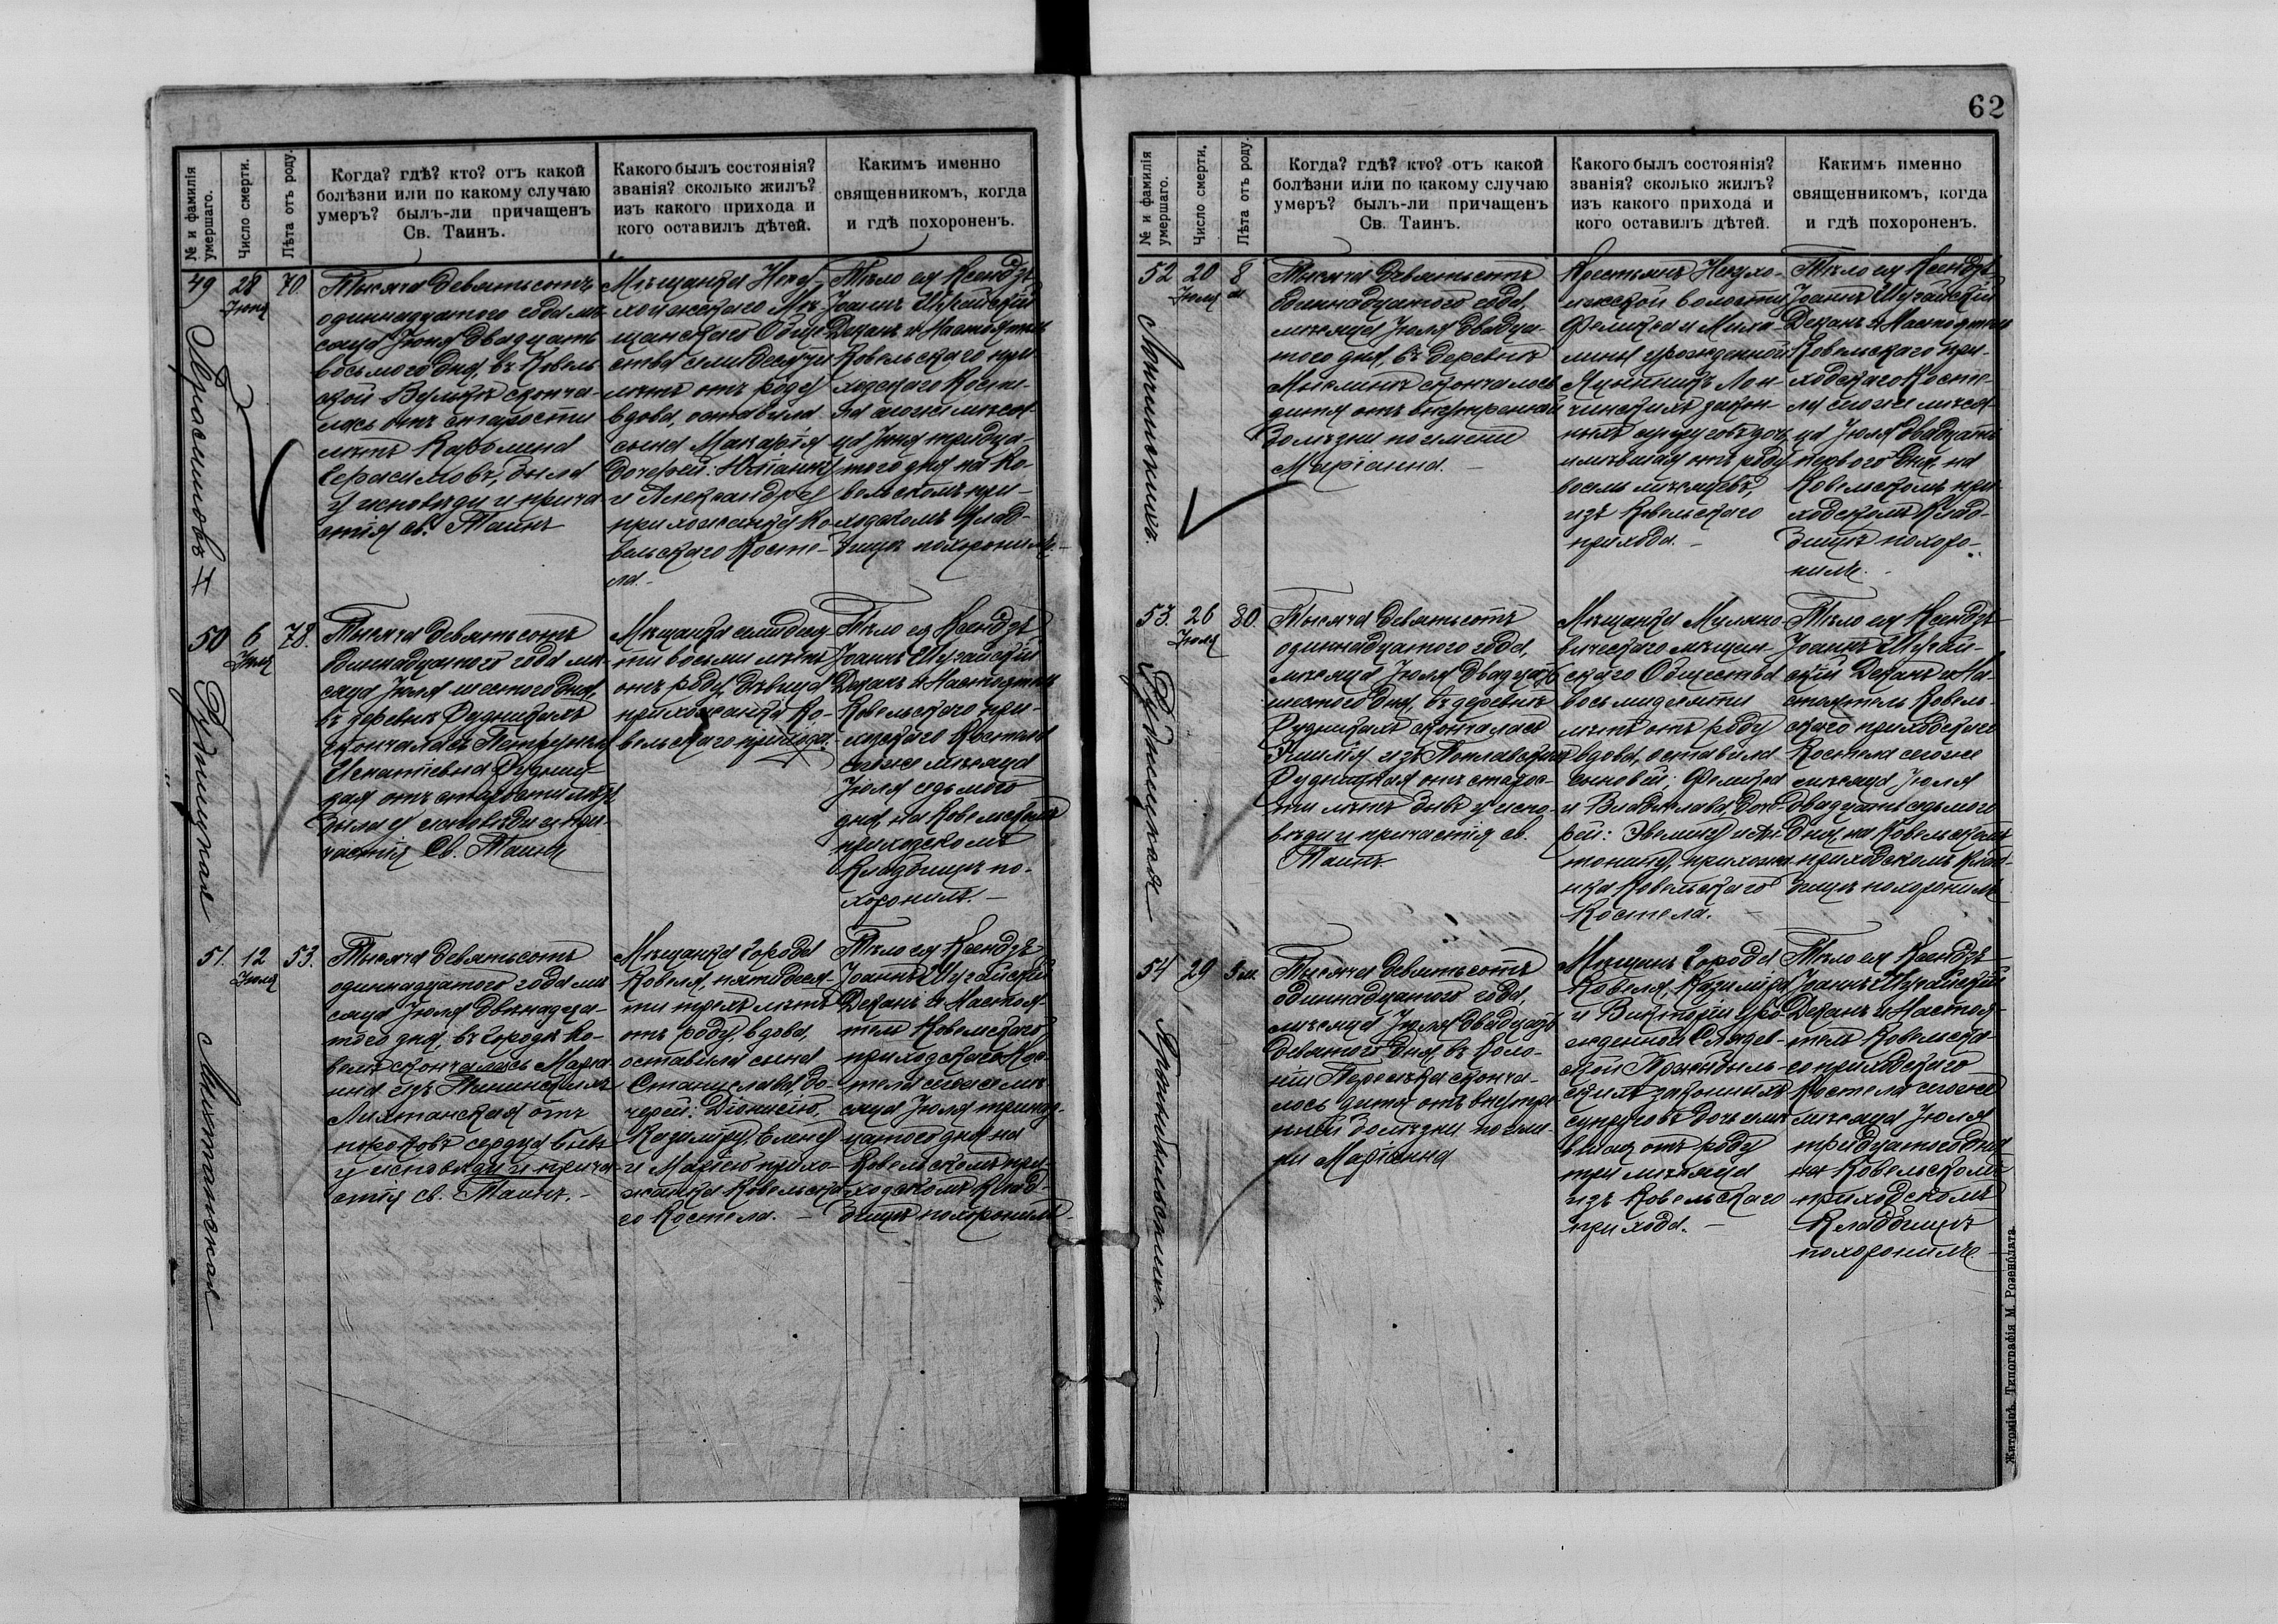 62
№ и фамилія умершаго.
Число смерти.
Лѣта отъ роду.
Когда? гдѣ? кто? отъ какой
болѣзни или по какому случаю
умеръ? былъ-ли причащенъ
Св. Таинъ.
Какого былъ состоянія?
званія? сколько жилъ?
изъ какого прихода и
кого оставилъ дѣтей.
Какимъ именно
священникомъ, когда
и гдѣ похороненъ.
49
28 Іюня
70.
Герасимовъ
Тысяча девятьсотъ
одиннадцатого года мѣ-
сяца Іюня двадцать
восьмого дня, въ Ковель
ской Вулькѣ сконча-
лась отъ старости
лѣтъ Каролина
Герасимовъ, была
у исповѣди и прича
стія св. Таинъ
Мѣщанка
щанского Обще
ства семидесяти
лѣтъ отъ роду
вдова, оставила
сына Макарія
дочерей: Юліанну
и Александру
прихожанка Ко-
вельского Косте-
ла.
Тѣло ея Ксендзъ
Іоаннъ Шугайскій
Деканъ и Настоятель
Ковельского при-
ходского Косте-
ла сего же мѣся-
ца Іюня тридца-
того дня на Ко-
вельскомъ при-
ходскомъ Клад-
бищѣ похоронилъ.
50
6 Іюля
78.
Рудницкая
Тысяча девятьсотъ
одиннадцатого года мѣ-
сяца Іюля шестого дня,
въ деревнѣ Рудникахъ
скончалась Петрунеля
Игнатіевна Рудниц-
кая отъ старости лѣтъ,
была у исповѣди и при-
частія Св. Таинъ
Мѣщанка семидеся
ти восьми лѣтъ
отъ роду, дѣвица
прихожанка Ко-
вельского прихода.
Тѣло ея Ксендзъ
Іоаннъ Шугайскій
Деканъ и Настоятель
Ковельского при-
ходского Костела
сего же мѣсяца
Іюля седьмого
дня, на Ковельскомъ
приходскомъ
Кладбищѣ по-
хоронилъ.
51.
12 Іюля
53.
Лихтанская
Тысяча девятьсотъ
одиннадцатого года мѣ
сяца Іюля двѣнадца-
того дня, въ городѣ Ко-
велѣ скончалась Марья
на изъ
Лихтанская отъ
пороковъ сердца была
у исповѣди и прича-
стія св. Таинъ.
Мѣщанка города
Ковеля, пятидеся
ти трехъ лѣтъ
отъ роду, вдова,
оставила сына
Станислава, до-
черей: Діонисію,
Казиміру, Елену
и Марію прихо-
жанка Ковельска
го Костела.
Тѣло ея Ксендзъ
Іоаннъ Шугайскій
Деканъ и Настоя-
тель Ковельского
приходского Кос-
тела сего же мѣ-
сяца Іюля тринад-
цатого дня на
Ковельскомъ при-
ходскомъ Клад-
бищѣ похоронилъ.
№ и фамилія умершаго.
Число смерти.
Лѣта отъ роду.
Когда? гдѣ? кто? отъ какой
болѣзни или по какому случаю
умеръ? былъ-ли причащенъ
Св. Таинъ.
Какого былъ состоянія?
званія? сколько жилъ?
изъ какого прихода и
кого оставилъ дѣтей.
Какимъ именно
священникомъ, когда
и гдѣ похороненъ.
52
20 Іюля
8 м
Лончинскихъ.
Тысяча девятьсотъ
одиннадцатого года,
мѣсяца Іюля двадца-
того дня, въ деревнѣ
Мыслинѣ скончалось
дитя отъ внутренней
болѣзни по имени
Маріанна.
Крестьянъ
волости
Феликса и
урожденной
Лон-
чинскихъ закон-
ныхъ супруговъ дочь
имѣвшая отъ роду
восемь мѣсяцевъ,
изъ Ковельского
прихода.
Тѣло ея Ксендзъ
Іоаннъ Шугайскій
Деканъ и Настоятель
Ковельского при-
ходского Косте-
ла сего же мѣся-
ца Іюля двадцать
первого дня, на
Ковельскомъ при-
ходскомъ Клад-
бищѣ похоро-
нилъ.
53.
26 Іюля
80.
Рудницкая
Тысяча девятьсотъ
одиннадцатого года,
мѣсяца Іюля двадцать
шестого дня, въ деревнѣ
Рудникахъ скончалась
Эмилія изъ Поплавскихъ
Рудницкая отъ старос-
ти лѣтъ была у испо-
вѣди и причастія св.
Таинъ.
Мѣщанка Миляно
вичского мѣщан-
ского Общества
восьмидесяти
лѣтъ отъ роду
вдова, оставила
сыновей: Феликса
и Владислава, доче-
рей: Эвелину и Ан-
тонину, прихожа-
нка Ковельского
Костела.
Тѣло ея Ксендзъ
Іоаннъ Шугай-
скій Деканъ и На-
стоятель Ковель-
ского приходского
Костела сего же
мѣсяца Іюля
двадцать седьмого
дня, на Ковельскомъ
приходскомъ Клад-
бищѣ похоронилъ
54
29
3 м.
Тысяча девятьсотъ
одиннадцатого года,
мѣсяца Іюля двадцать
девятого дня, въ Коло-
ніи сконча-
лось дитя отъ внутре-
нней болѣзни по име-
ни Маріанна
Мѣщанъ города
Ковеля, Казиміра
и Викторіи уро-
жденной
скихъ законныхъ
супруговъ дочь имѣ
вшая отъ роду
три мѣсяца
изъ Ковельского
прихода.
Тѣло ея Ксендзъ
Іоаннъ Шугайскій
Деканъ и Настоя-
тель Ковельска-
го приходского
Костела сего же
мѣсяца Іюля
тридцатого дня
на Ковельскомъ
приходскомъ
Кладбищѣ
похоронилъ.
Житоміръ. Типографія М. Розенблата.